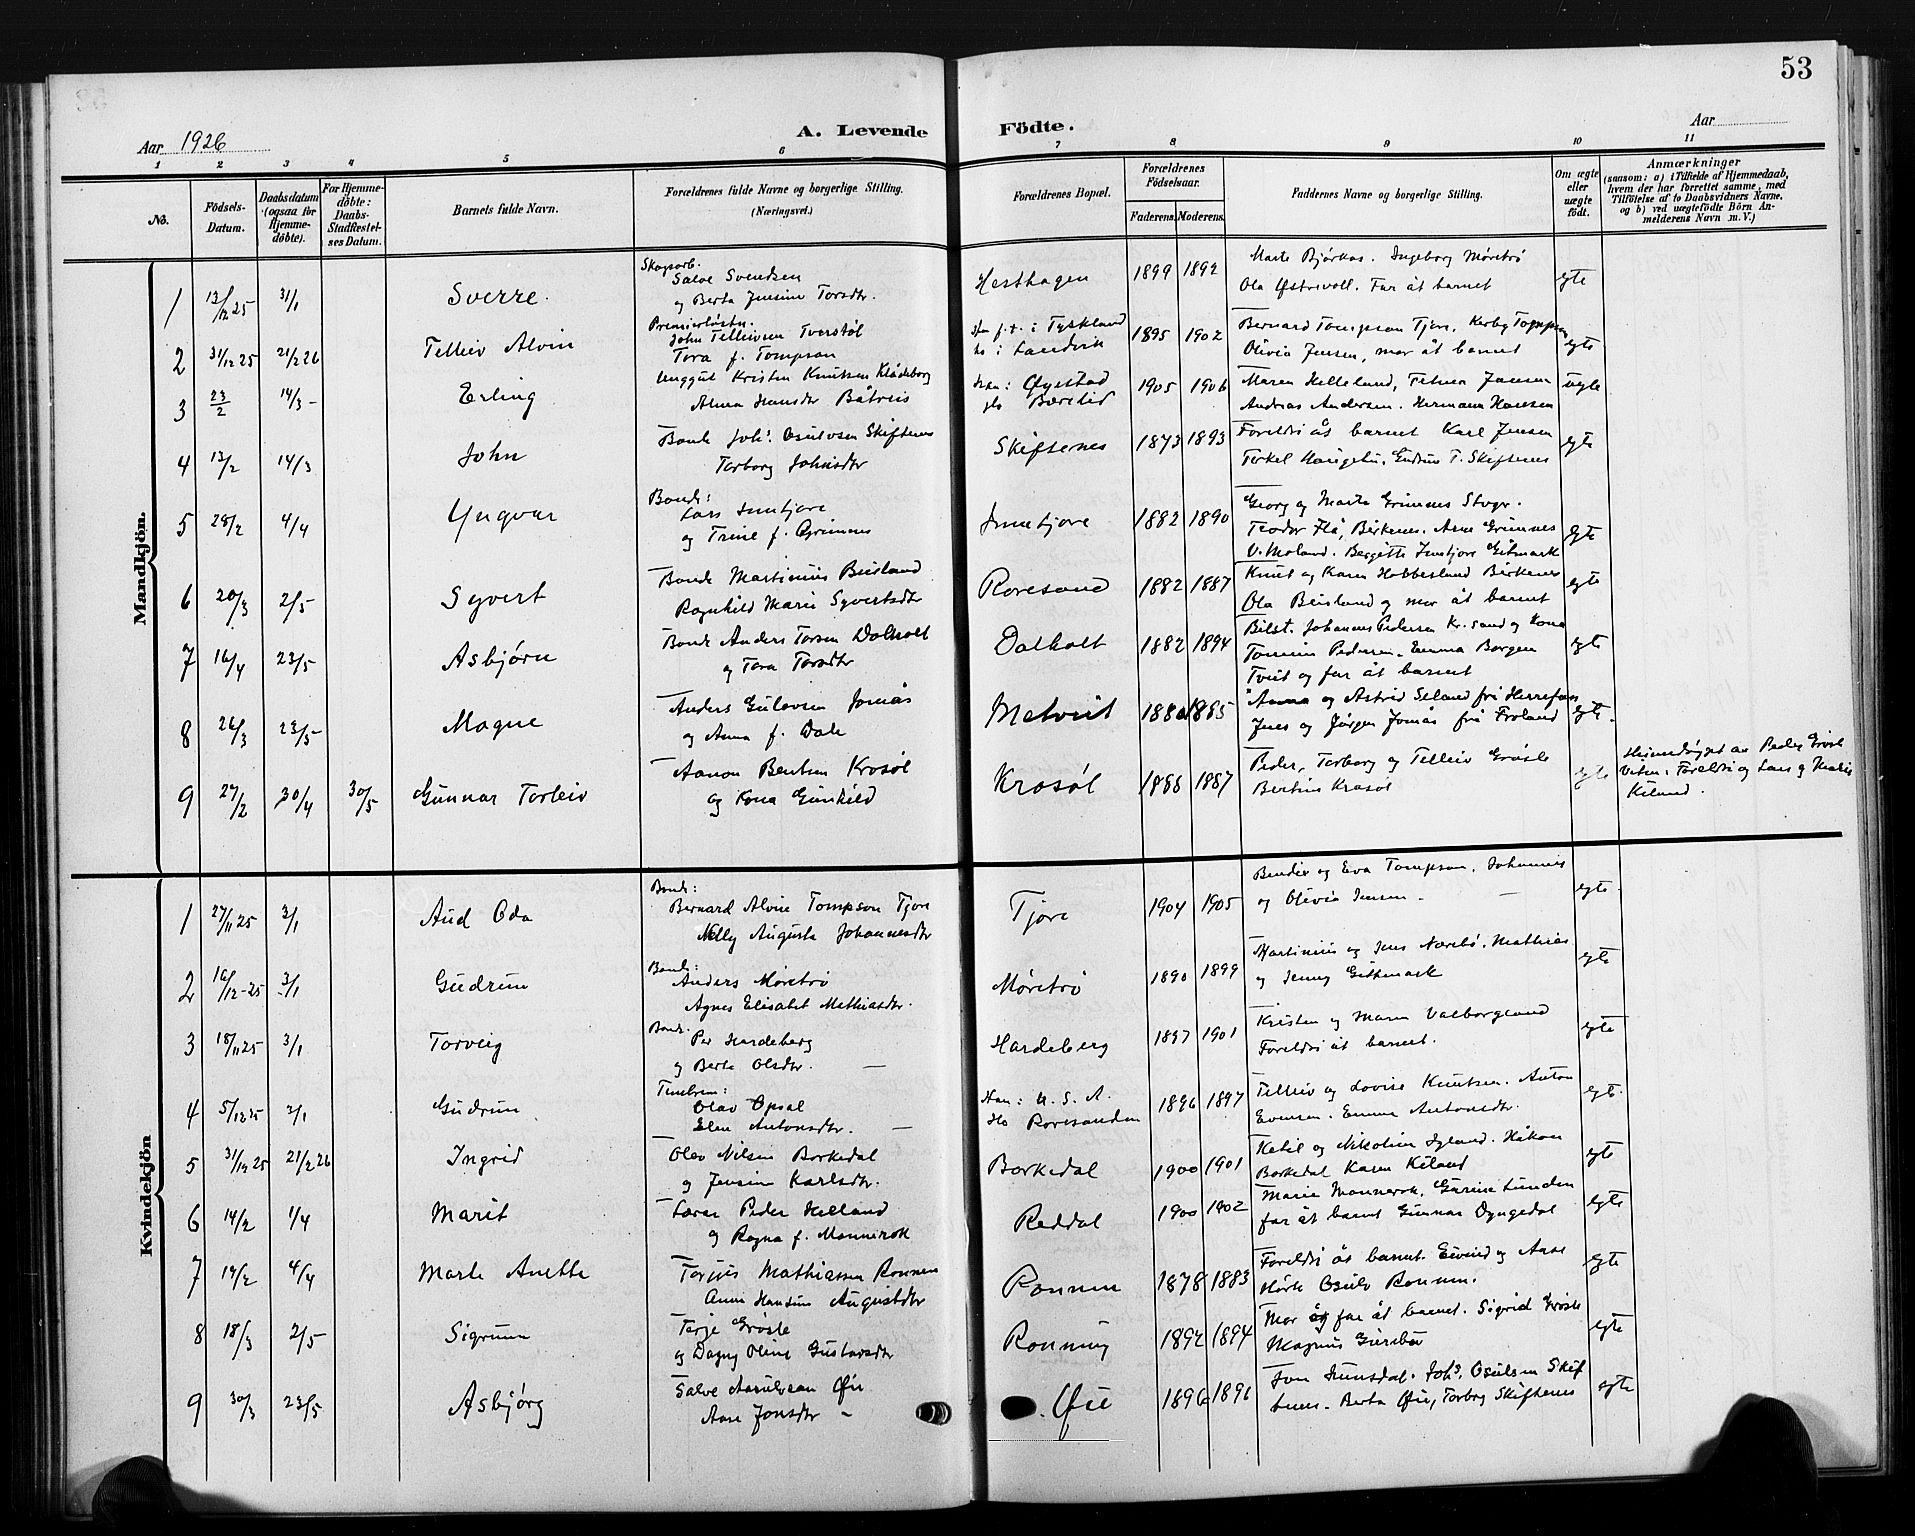 53
Aar 1926
A. Levende Födte.
Aar
1 2 3 4 5 6 7 8 9 10 11
No.
Födsels-Datum.
Daabsdatum (ogsaa for Hjemmedöbte).
For Hjemmedöbte: Daabs-Stadfæstelses Datum.
Barnets fulde Navn.
Forældrenes fulde Navne og borgerlige Stilling. (Næringsvei.)
Forældrenes Bopæl.
Forældrenes Födselsaar.
Faderens. Moderens.
Faddernes Navne og borgerlige Stilling.
Om ægte eller uægte födt.
Anmærkninger
(saasom: a) i Tilfælde af Hjemmedaab, hvem der har forrettet samme, med Tilföielse af to Daabsvidners Navne, og b) ved uægtefödte Börn Anmelderens Navn m. V.)
Mandkjön.
1 13/12 25 31/1 Sverre.
Skogsarb. Salve Svendsen
og Berta Jensine Torsdtr.
Hesthagen 1899 1892
Marte Bjørkås. Ingeborg Møretrø
Ola Østrevoll. Far åt barnet
egte
2 31/12 25 21/2 26 Telleiv Alvin
Premierløitn. John Telleivsen Tverstøl
Tora f. Tompson
Han f.t. i Tyskland
ho i Landvik
1895 1902
Bernard Tompson Tjore, Kerby Tompson
Olivia Jensen, mor åt barnet
egte
3 23/2 14/3 - Erling
Unggut Kristen Knutsen Klådeborg
Alma Hansdtr Båtreis
Han: Øyestad
1905 1906
Maren Helleland, Telma Jansen
Andreas Andersen. Hermann Hansen
uegte
4 13/2 14/3 John
Bonde Joh. Osulvsen Skiftenes
Torborg Johnsdtr
Skiftenes 1873 1893
Foreldri åt barnet Karl Jensen
Terkel Haugelii, Gudrun T. Skiftenes
egte
5 28/2 4/4 Yngvar
Bonde: Lars Imetjore
og Trine f. Grimnes
Imetjore 1882 1890
Georg og Marta Grimnes Stegr.
Teodor Flå, Birkenes. Arne Grimnes
V. Moland. Bergitte Imetjore Gitmark
egte
6 20/3 2/5 Syvert
Bonde Martinius Beisland
Ragnhild Marie Syvertsdtr
Roresand 1882 1887
Knut og Karen Hobbesland Birkenes
Ola Beisland og mor åt barnet
egte
7 16/4 23/5 Asbjørn
Bonde Anders Torsen Dalholt
og Tora Torsdtr
Dalholt 1882 1894
Bilst. Johannes Pedersen Kr.sand og Kona
Tomine Pedersen. Emma Borgen
Tveit og far åt barnet
egte
8 26/3 23/5 Magne
Anders Gulovsen Jomås
og Anna f. Dale
Metveit 1880 1885
Anna og Astrid Seland frå Herrefoss
Jens og Jørgen Jomås frå Froland
egte.
9 27/2 30/4 30/5 Gunnar Torleiv
Aanon Bentsen Krosøl
og Kona Gunhild
Krosøl 1888 1887
Peder, Torborg og Telleiv Grøsle
Bertine Krosøl
egte
Heimedøypt av Peder Grøsle
Vitne: Foreldri og Lars og Maria
Kiland.
Kvindekjön
1 27/11 25 3/1 Aud Oda
Bonde: Bernard Alvin Tompson Tjore
Nelly Augusta Johannesdtr
Tjore 1904 1905
Bendix og Eva Tompson, Johannes
og Olivia Jensen. —
egte.
2 16/12-25 3/1 Gudrun
Bonde: Anders Møretrø
Agnes Elisabet Mathiasdtr.
Møretrø 1890 1899
Martinius og Jens Nærebø, Mathias
og Jenny Gitmark
egte
3 18/11 25 3/1 Torveig
Bonde. Per Hardeberg
og Berte Olsdtr. —
Hardeberg 1897 1901
Kristen og Maren Valborgland
Foreldri åt barnet.
egte
4 5/12 25 3/1 Gudrun
Timbrem: Olav Opsal
Elen Antonsdtr. —
Han: U. S. A.
Ho Roresanden
1896 1897
Telleiv og Lovise Knutsen. Anton
Evensen. Emma Antonsdtr.
egte.
5 31/12 25 21/2 26 Ingrid
Olav Nilsen Borkedal
og Jensine Karlsdtr.
Borkedal 1900 1901
Ketil og Nikoline Igland. Håkon
Borkedal Karen Kiland
egte
6 14/2 1/4 Marit
Lærar Peder Helland
og Ragna f. Mannerok
Reddal 1900 1902
Marie Mannerok, Gurine Lunden
far åt barnet Gunnar Dyngedal
egte
7 19/2 4/4 Marte Anette
Torjus Mathiassen Ronnen
Anne Hansine Augustdtr
Ronnen 1878 1883
Foreldri åt barnet. Eivind og Aase
Mørk Osulv Ronnen.
egte
8 18/3 2/5 Sigrunn
Terje Grøsle
og Dagny Oline Gustavsdtr
Ronning 1892 1894
Mor og far åt barnet. Sigrid Grøsle
Magnus
egte
9 30/3 23/5 Asbjørg
Salve Aasulvsen Øie
Aase Jonsdtr -
Øie 1896 1896
Jon Hunsdal. Joh. Osulvsen Skiftenes. Berta Øie, Torborg Skiftenes
egte